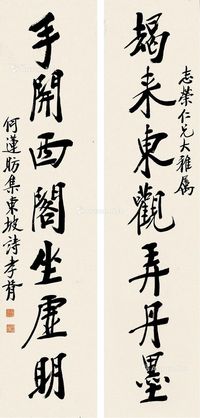 志榮仁兄大雅屬
朅来東觀弄丹墨
手開西閣坐虛明
何蓮舫集東坡詩孝胥